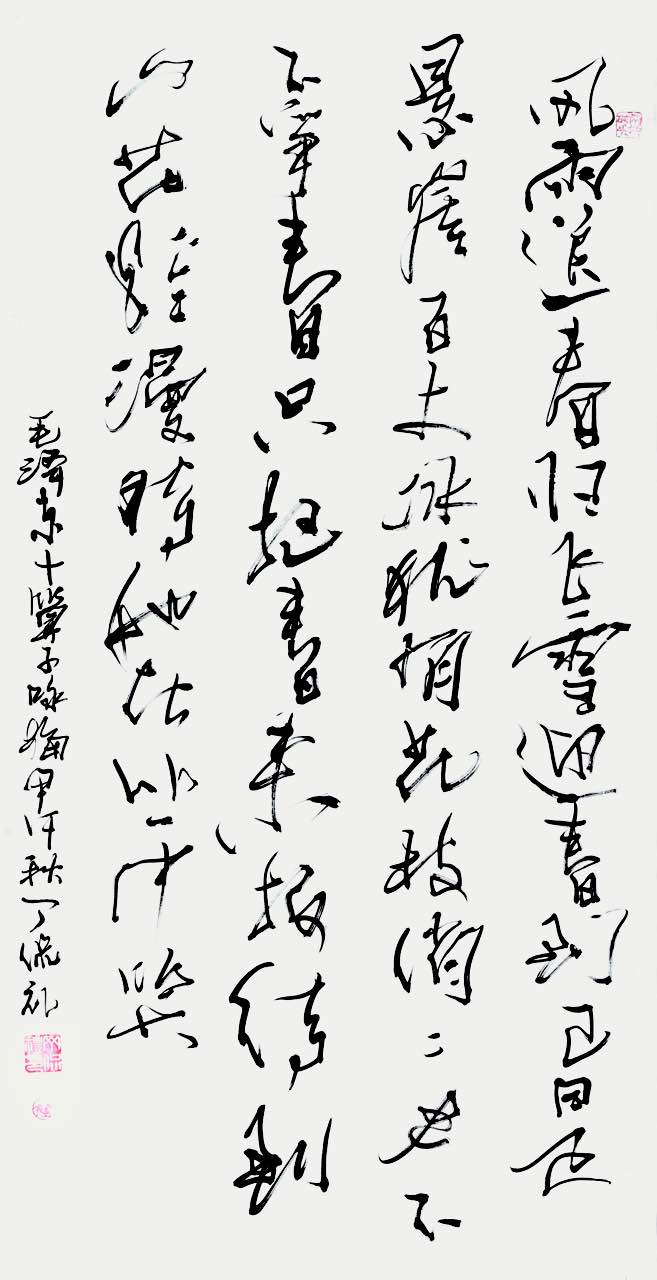 风雨送春归飞雪迎春到已是
悬崖百丈冰犹有花枝俏二也不
争春只把春来报待到
山花烂漫時她在丛中笑
毛澤东卜算子咏梅甲午秋丁侃